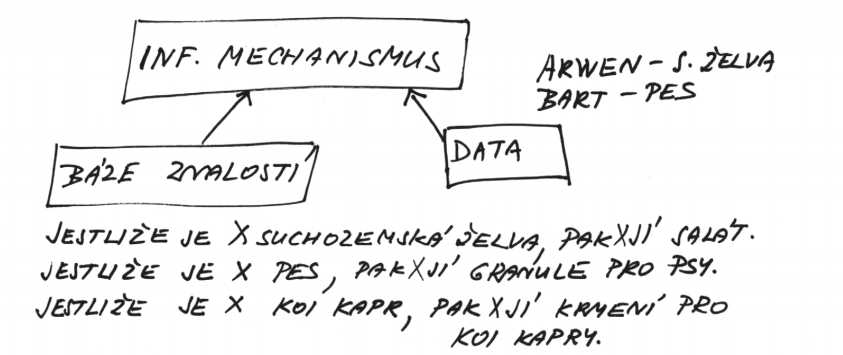 INF. MECHANISMUS
ARWEN - S. ŽELVA
BART - PES
BÁZE ZNALOSTÍ
DATA
JESTLIŽE JE X SUCHOZEMSKÁ ŽELVA, PAK X JÍ SALÁT.
JESTLIŽE JE X PES, PAK X JÍ GRANULE PRO PSY.
JESTLIŽE JE X KOI KAPR, PAK X JÍ KRMENÍ PRO
KOI KAPRY.